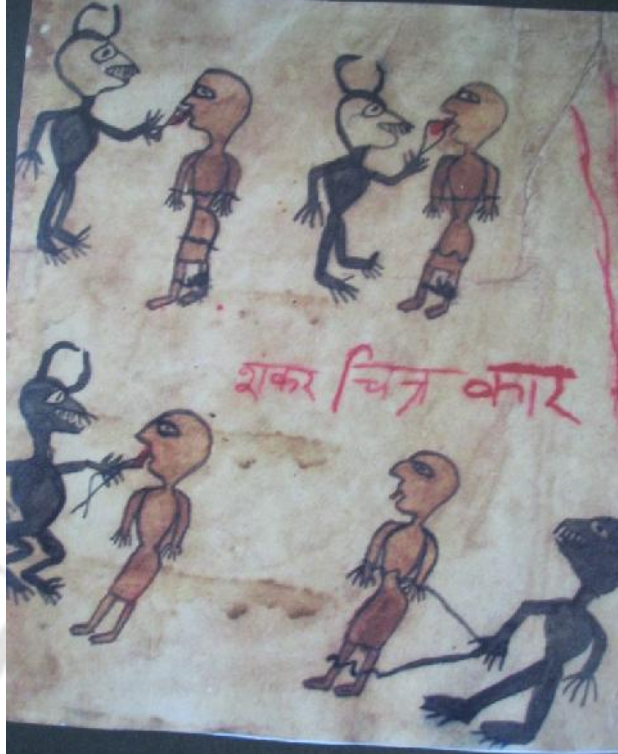 शकर चित्र कार